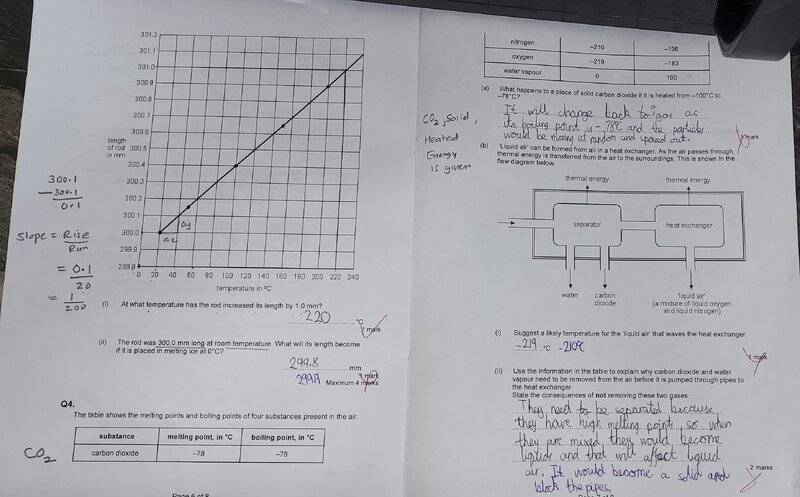 301.2
301.1
301.0
300.9
300.8
300.7
300.6
300.5
300.4
300.3
300.2
300.1
300.0
299.9
299.8
length
of rod
in mm
0 20 40 60 80 100 120 140 160 180 200 220 240
temperature in °C
Δy
Δx
300.1
- 300.1
0.1
Slope = Rise
Run
= 0.1
20
= 1
200
(i) At what temperature has the rod increased its length by 1.0 mm?
220 °C
1 mark
(ii) The rod was 300.0 mm long at room temperature. What will its length become
if it is placed in melting ice at 0°C?
299.8 mm
299.9
1 mark
Maximum 4 marks
Q4.
The table shows the melting points and boiling points of four substances present in the air.
substance melting point, in °C boiling point, in °C
carbon dioxide -78 -78
CO2
Page 6 of 8
nitrogen -210 -196
oxygen -219 -183
water vapour 0 100
(a) What happens to a piece of solid carbon dioxide if it is heated from -100°C to
-78°C?
CO2, Solid,
Heated
Energy
is given
It will change back to a gas as
its boiling point is -78°C and the particles
would be moving at random and spaced out.
1 mark
(b) 'Liquid air' can be formed from air in a heat exchanger. As the air passes through,
thermal energy is transferred from the air to the surroundings. This is shown in the
flow diagram below.
thermal energy thermal energy
separator heat exchanger
water carbon
dioxide
'liquid air'
(a mixture of liquid oxygen
and liquid nitrogen)
(i) Suggest a likely temperature for the 'liquid air' that leaves the heat exchanger.
-219 °C -210°C
1 mark
(ii) Use the information in the table to explain why carbon dioxide and water
vapour need to be removed from the air before it is pumped through pipes to
the heat exchanger.
State the consequences of not removing these two gases.
They need to be separated because
they have high melting point so when
they are mixed they would become
liquids and that will affect liquid
air. It would become a solid and
block the pipes.
2 marks